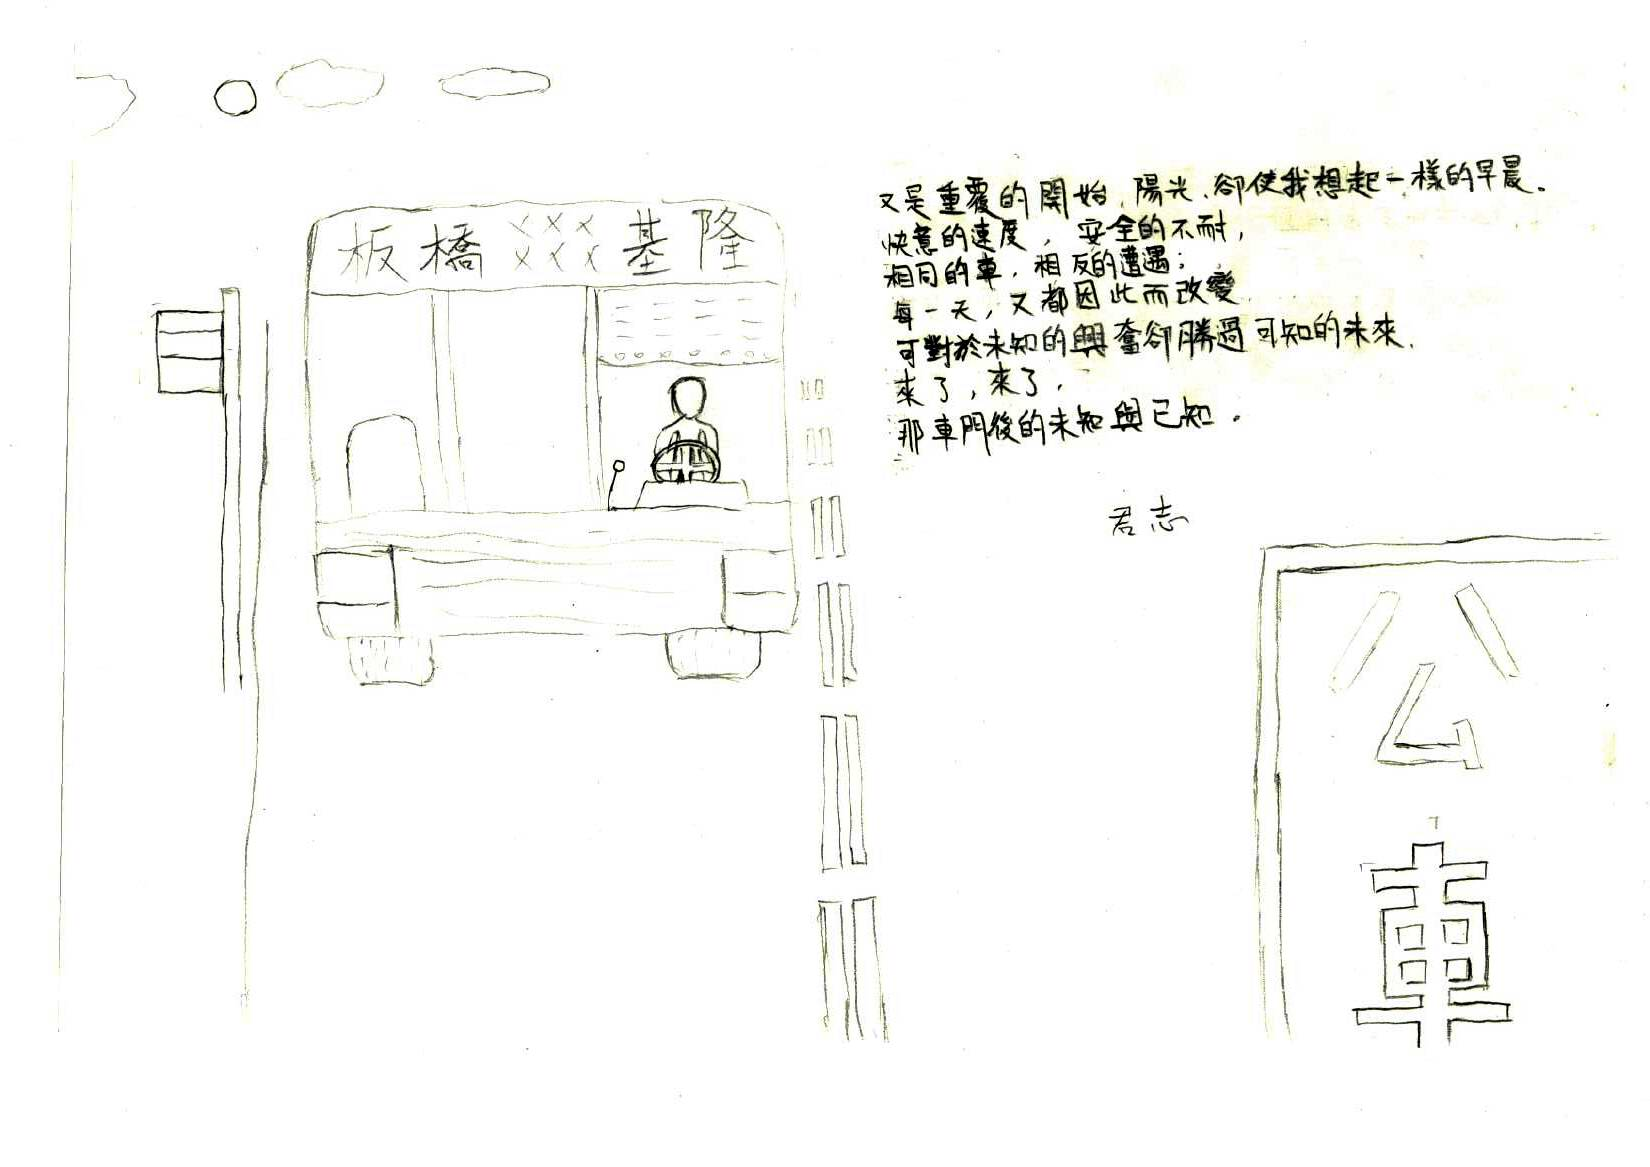 板橋 xxx xxx 基隆
又是重覆的開始,陽光,卻使我想起一樣的早晨。
快意的速度,安全的不耐,
相同的車,相反的遭遇;
每一天,又都因此而改變.
可對於未知的興奮卻勝過可知的未來.
來了,來了,
那車門後的未知與已知。
君志
公
車